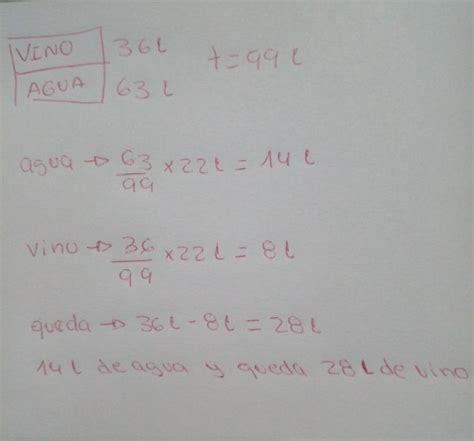 VINO 36 l t = 99 l
AGUA 63 l
agua → 63/99 x 22 l = 14 l
vino → 36/99 x 22 l = 8 l
queda → 36 l - 8 l = 28 l
14 l de agua y queda 28 l de vino